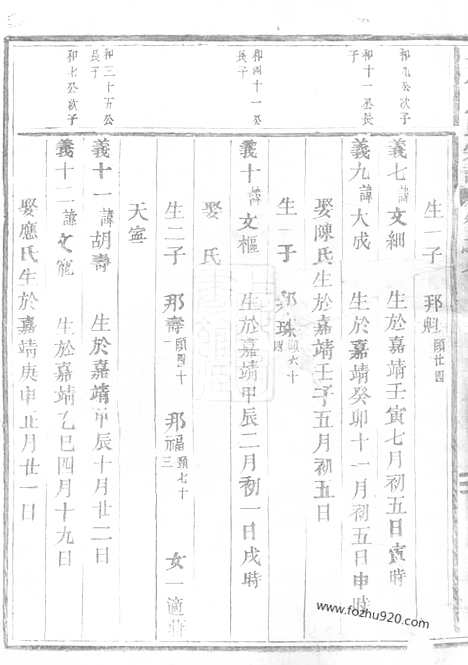 生一子 邦魁 頤廿四
和九公次子
義七 諱文細 生於嘉靖壬寅七月初五日寅時
和十一公長子
義九 諱大成 生於嘉靖癸卯十一月初五日申時
娶陳氏生於嘉靖壬子五月初五日
生一子 邦珠 頤六十四
和四十一公長子
義十 諱文樞 生於嘉靖甲辰二月初一日戌時
娶 氏
生二子 邦壽 頤四十一 邦福 頤七十三 女一適莊
天寧
和三十五公長子
義十一 諱胡壽 生於嘉靖甲辰十月廿二日
和七公次子
義十二 諱文寵 生於嘉靖乙巳四月十九日
娶應氏生於嘉靖庚申正月廿一日
www.fozhu920.com